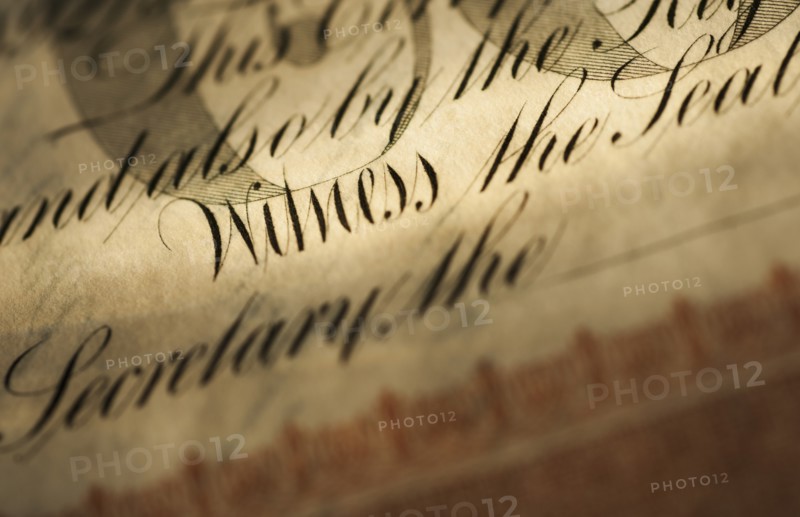 This by the Reg
and also by the Seal
Witness the Seal
Secretary the
PHOTO12
PHOTO12
PHOTO12
PHOTO12
PHOTO12
PHOTO12
PHOTO12
PHOTO12
PHOTO12
PHOTO12
PHOTO12
PHOTO12